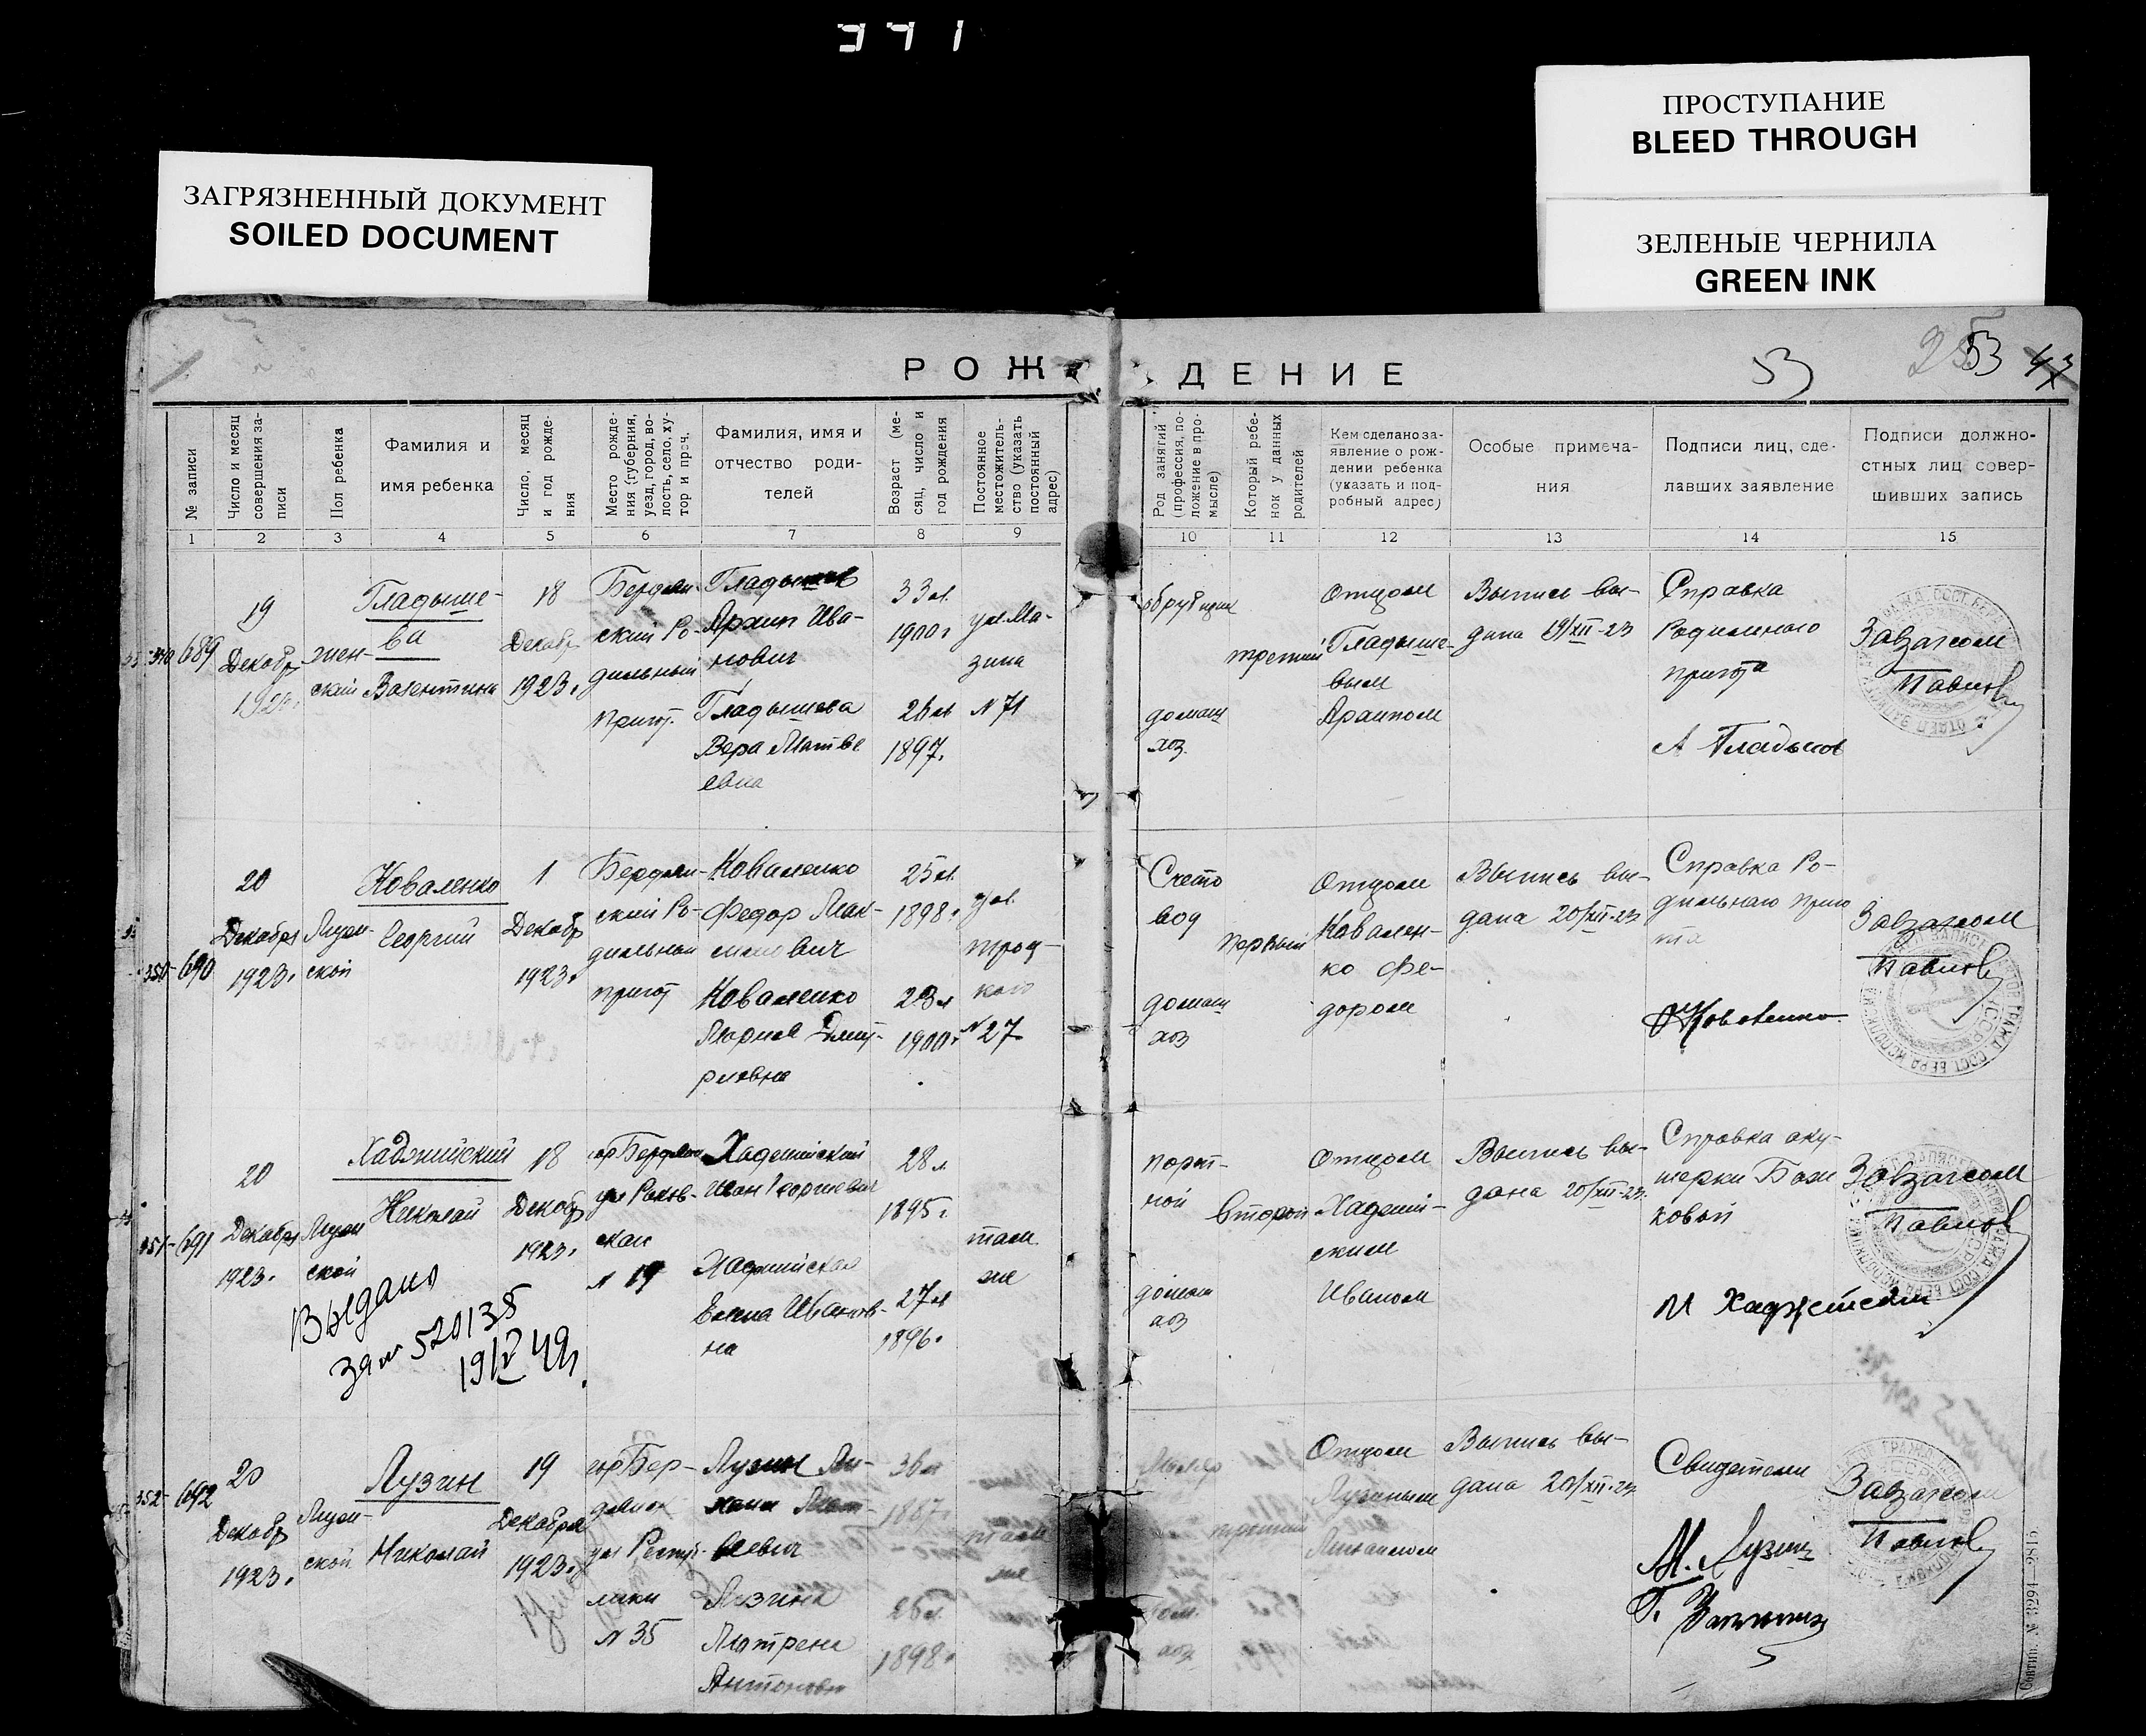 371
ПРОСТУПАНИЕ
BLEED THROUGH
ЗАГРЯЗНЕННЫЙ ДОКУМЕНТ
SOILED DOCUMENT
ЗЕЛЕНЫЕ ЧЕРНИЛА
GREEN INK
РОЖДЕНИЕ
53
53
43
№ записи
Число и месяц
совершения за-
писи
Пол ребенка
Фамилия и
имя ребенка
Число, месяц
и год рожде-
ния
Место рожде-
ния (губерния,
уезд, город, во-
лость, село, ху-
тор и проч.
Фамилия, имя и
отчество роди-
телей
Возраст (ме-
сяц, число и
год рождения
Постоянное
местожитель-
ство (указать
постоянный
адрес)
Род занятий
(профессия, по-
ложение в про-
мысле)
Который ребе-
нок у данных
родителей
Кем сделано за-
явление о рож-
дении ребенка
(указать и под-
робный адрес)
Особые примеча-
ния
Подписи лиц, сде-
лавших заявление
Подписи должно-
стных лиц совер-
шивших запись
1 2 3 4 5 6 7 8 9 10 11 12 13 14 15
689
19
Декабр
192
жен-
ский
Гладыше-
ва
Валентина
18
Декабр
1923.
Бердян-
ский Ро-
дильный
приют.
Гладышев
Архип Ива-
нович
Гладышева
Вера Матве
евна
33 л.
1900 г
26 л
1897.
ул. Ма-
зина
N 71
домаш
хоз.
третий
Отцом
Гладыше-
вым
Архипом
Выпись вы-
дана 19/XII-23
Справка
Родильного
приюта
А Гладышев
Завзагсом
Павлов
350 690
20
Декабря
1923.
Мужс-
кой
Коваленко
Георгий
1
Декабр
1923.
Бердян-
ский Ро-
дильный
приют
Коваленко
Федор Мак-
симович
Коваленко
Мария Дмит-
риевна
25 л.
1898.
23 л
1900 г.
ул.
Троц-
кого
N 27
Счето
вод
домаш
хоз
Первый
Отцом
Ковален-
ко Фе-
дором
Выпись вы-
дана 20/XII-23
Справка Ро-
дильного прию
та
Коваленко
Завзагсом
Павлов
351 691
20
Декабря
1923.
Мужс
ской
Хаджийский
Николай
18
Декабр
1923.
гор Бердян
ул
N 19
Хаджийский
Иван Георгиевич
Хаджийская
Елена Иванов-
на
28 л
1895 г.
27 л
1896.
там
же
порт-
ной
домаш
хоз
Второй
Отцом
Хаджий-
ским
Иваном
Выпись вы-
дана 20/XII-23
Справка аку-
шерки
ковой
Завзагсом
Павлов
Выдано
520135
19/V 49г.
352 692
20
Декабр
1923.
Мужс-
ской
Лузин
Николай
19
Декабря
1923.
гор Бер-
дянск
ул Респуб-
лики
N 35
Лузин Ми-
хаил Мат-
веевич
Лузина
Матрена
Антоновна
36 л
1887.
26 л.
1898.
там
же
дом.
хоз
третий
Отцом
Лузиным
Михаилом
Выпись вы-
дана 20/XII-23
Свидетели
М. Лузин
Завзагсом
Павлов